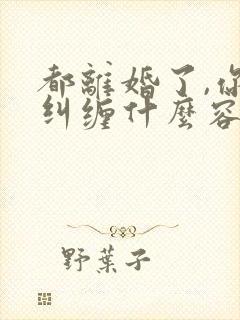 都離婚了,你
纠缠什麼容
野葉子